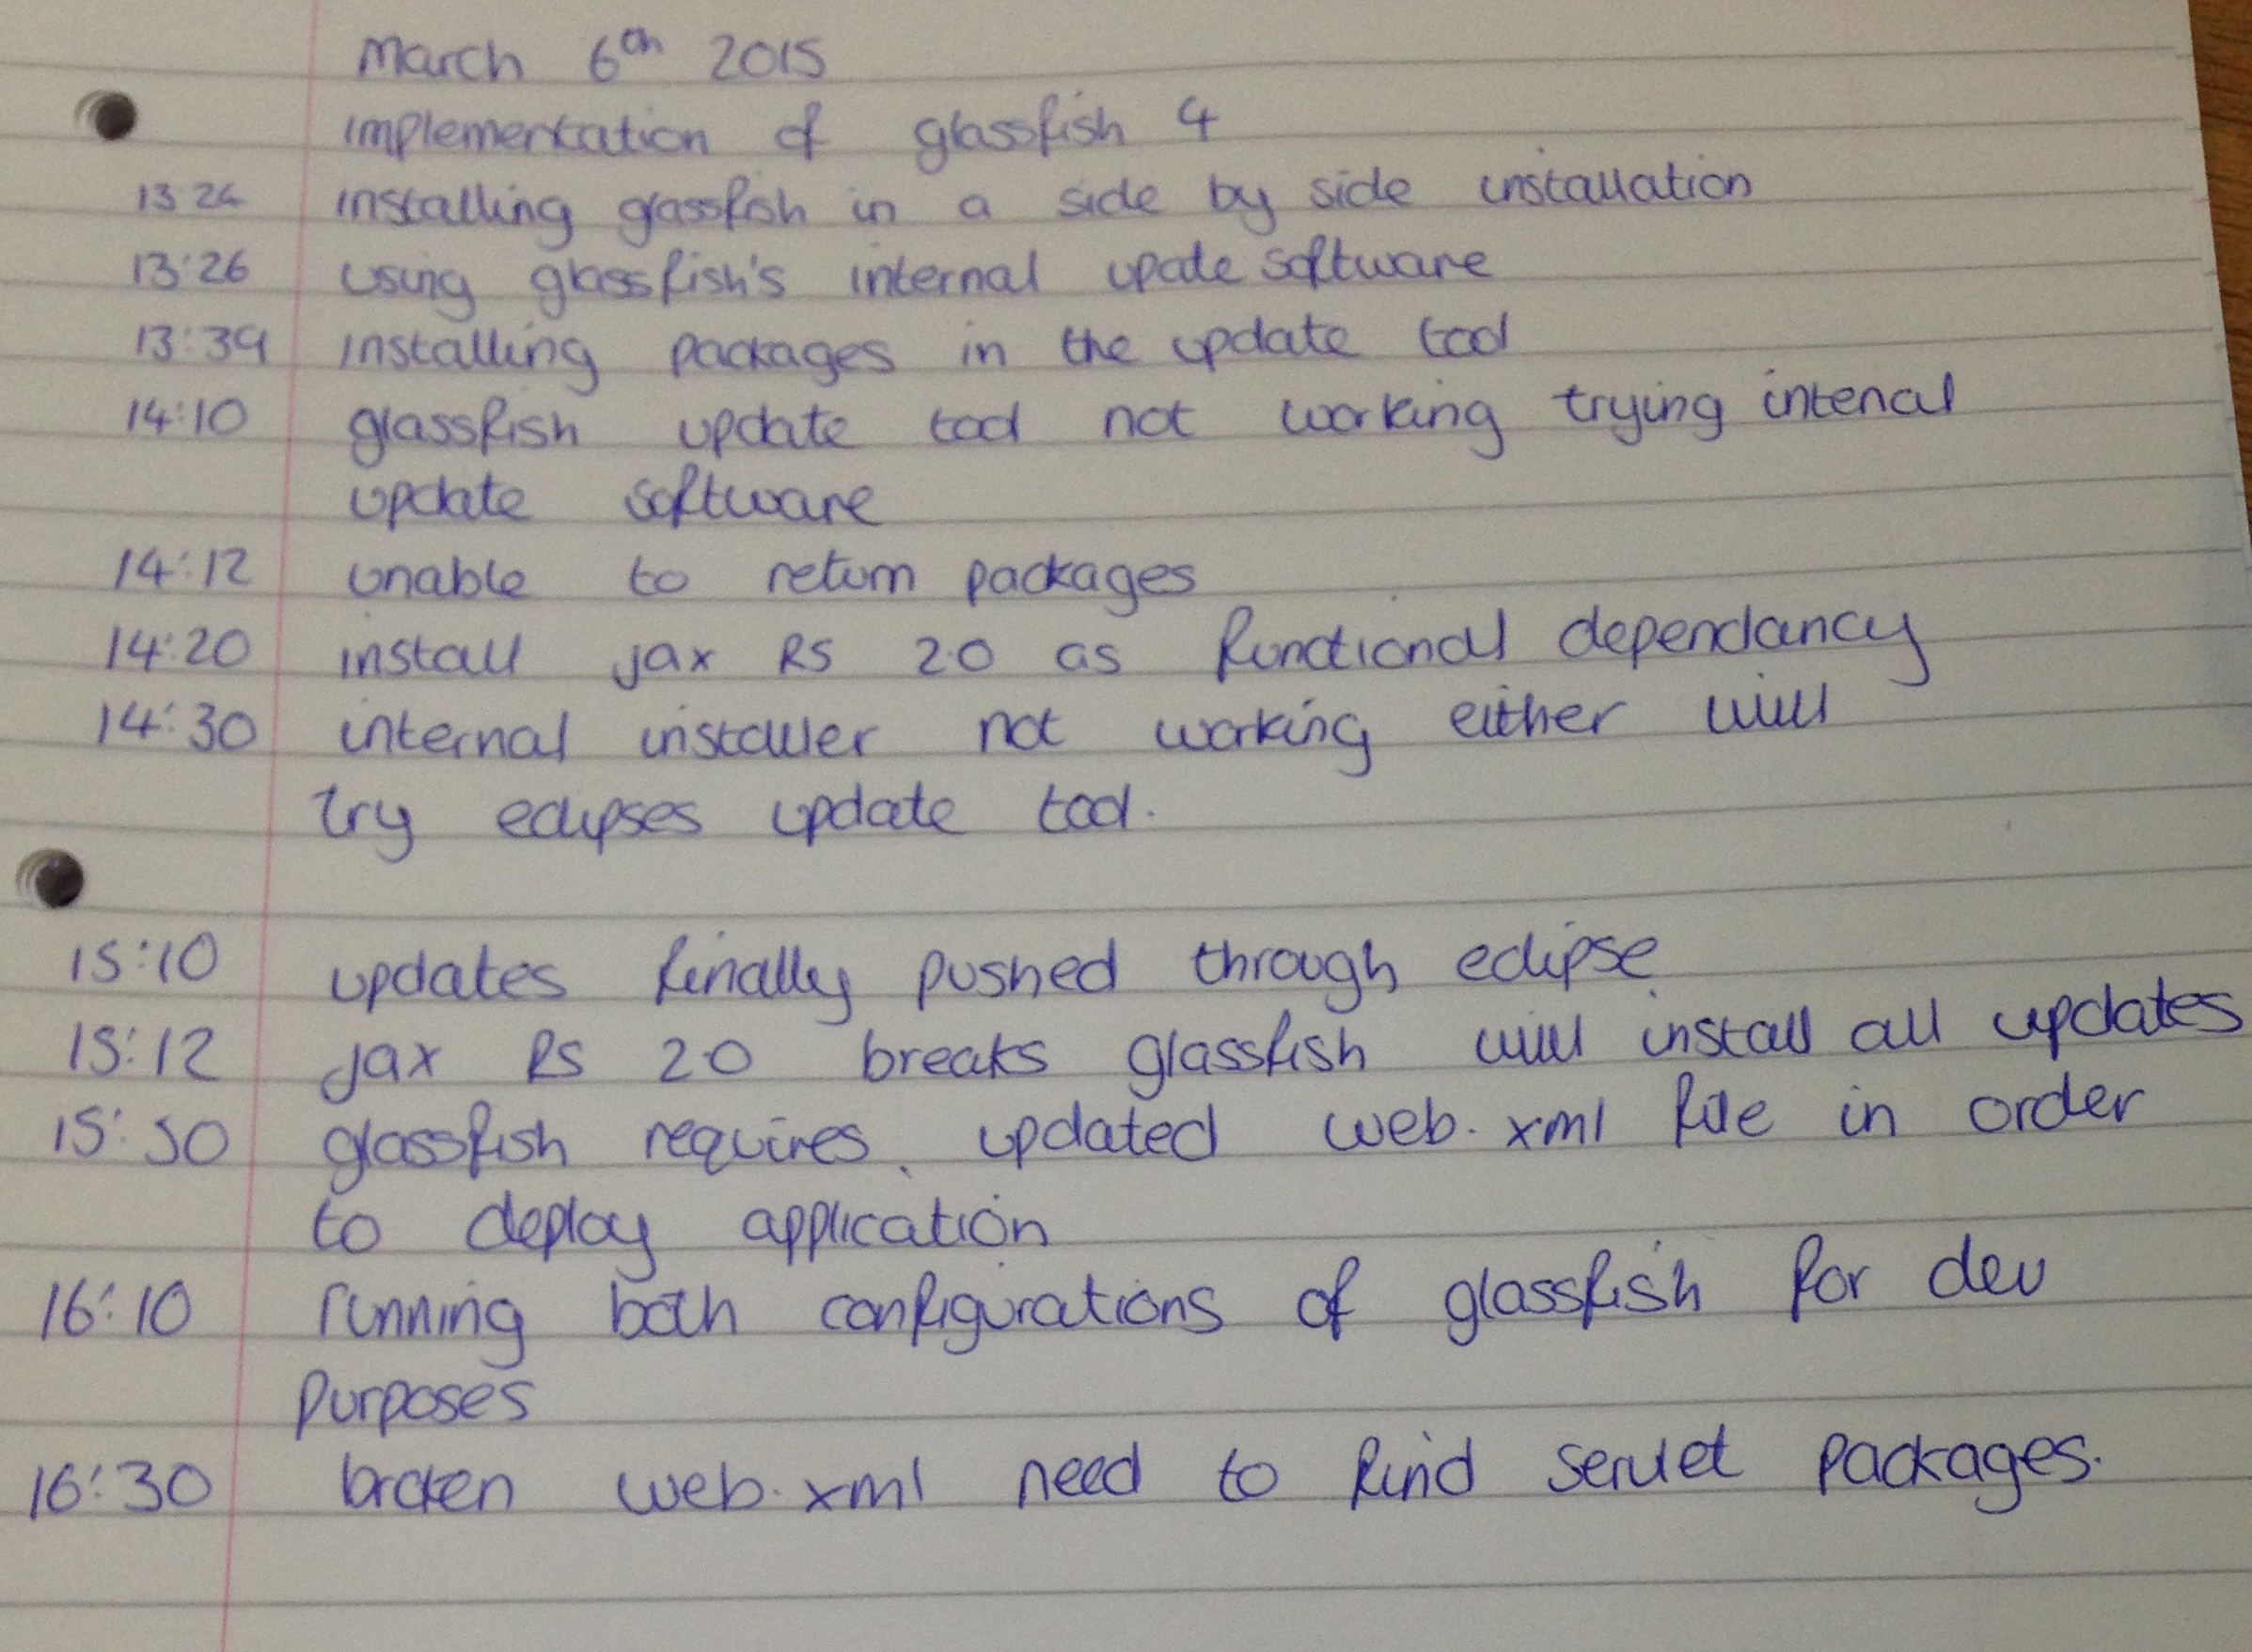 March 6th 2015
implementation of glassfish 4
13:24 installing glassfish in a side by side installation
13:26 using glassfish's internal upate software
13:39 installing packages in the update tool
14:10 glassfish update tool not working trying intenal
update software
14:12 unable to return packages
14:20 install jax RS 2.0 as functional dependancy
14:30 internal installer not working either will
try eclipses update tool.
15:10 updates finally pushed through eclipse
15:12 jax RS 2.0 breaks glassfish will install all updates
15:50 glassfish requires updated web.xml file in order
to deploy application
16:10 running both configurations of glassfish for dev
purposes
16:30 broken web.xml need to find servlet packages.